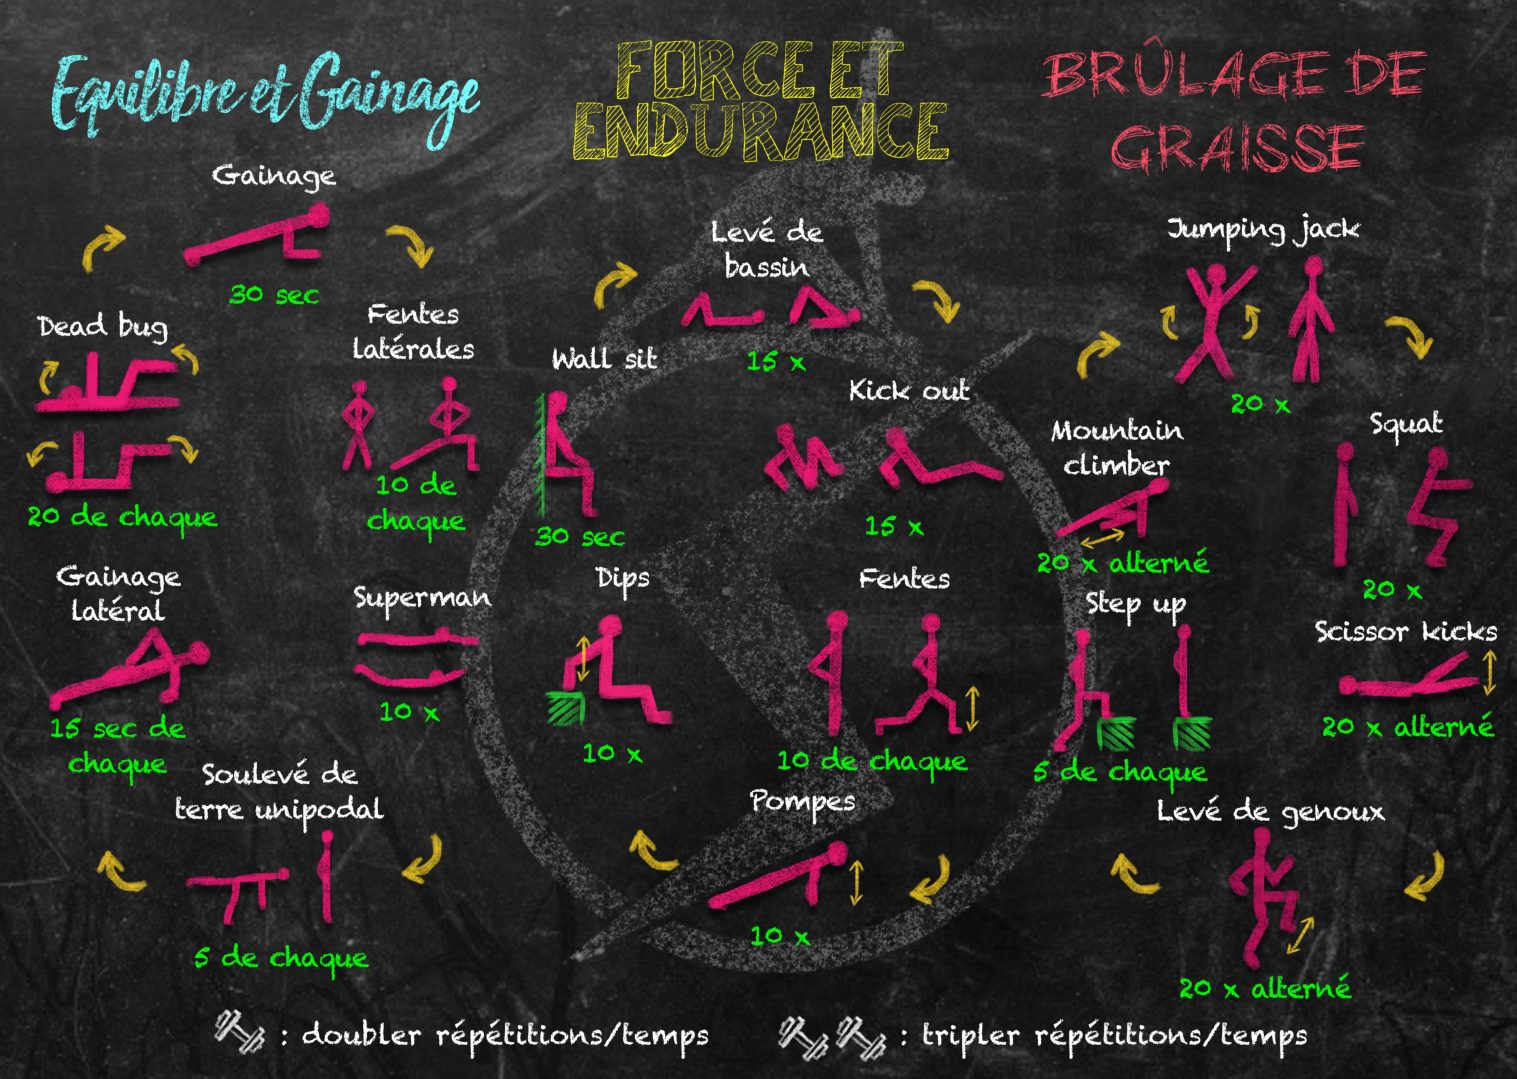 Equilibre et Gainage
Gainage
30 sec
Fentes
latérales
10 de
chaque
Superman
10 x
Soulevé de
terre unipodal
5 de chaque
Gainage
latéral
15 sec de
chaque
Dead bug
20 de chaque
FORCE ET
ENDURANCE
Levé de
bassin
15 x
Kick out
15 x
Fentes
10 de chaque
Pompes
10 x
Dips
10 x
Wall sit
30 sec
BRÛLAGE DE
GRAISSE
Jumping jack
20 x
Squat
20 x
Scissor kicks
20 x alterné
Levé de genoux
20 x alterné
Step up
5 de chaque
Mountain
climber
20 x alterné
: doubler répétitions/temps
: tripler répétitions/temps